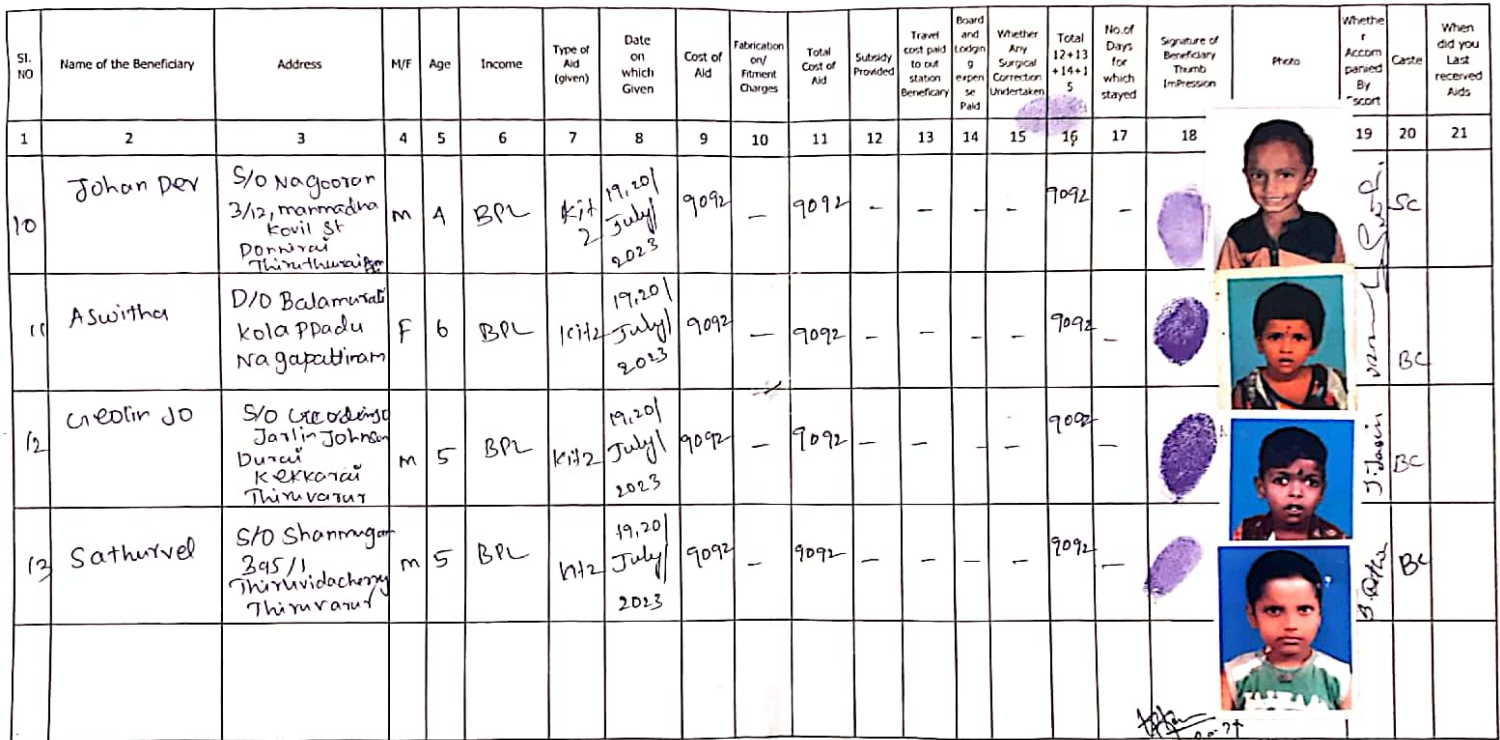 Sl. NO
Name of the Beneficiary
Address
M/F
Age
Income
Type of Aid (given)
Date on which Given
Cost of Aid
Fabrication on/ Fitment Charges
Total Cost of Aid
Subsidy Provided
Travel cost paid to out station Beneficary
Board and Lodging expense Paid
Whether Any Surgical Correction Undertaken
Total 12+13+14+15
No.of Days for which stayed
Signature of Beneficiary Thumb ImPression
Photo
Whether Accompanied By Escort
Caste
When did you Last received Aids
1 2 3 4 5 6 7 8 9 10 11 12 13 14 15 16 17 18 19 20 21
10 Johan Dev
S/O Nagooran
3/12, manmadha
Kovil St
M 4 BPL Kit 2 19,20/ July/ 2023 9092 – 9092 – – – – 9092 – SC
11 Aswitha
D/O Balamurali
Kolappadu
Nagapattinam
F 6 BPL Kit2 19,20/ July/ 2023 9092 – 9092 – – – – 9092 – BC
12
S/O
Jarlin Johnson
Durai
Kekkarai
Thiruvarur
M 5 BPL Kit2 19,20/ July/ 2023 9092 – 9092 – – – – 9092 – BC
13 Sathurvel
S/O Shanmugam
395/1
Thiruvidacherry
Thiruvarur
M 5 BPL Kit2 19,20/ July/ 2023 9092 – 9092 – – – – 9092 – BC